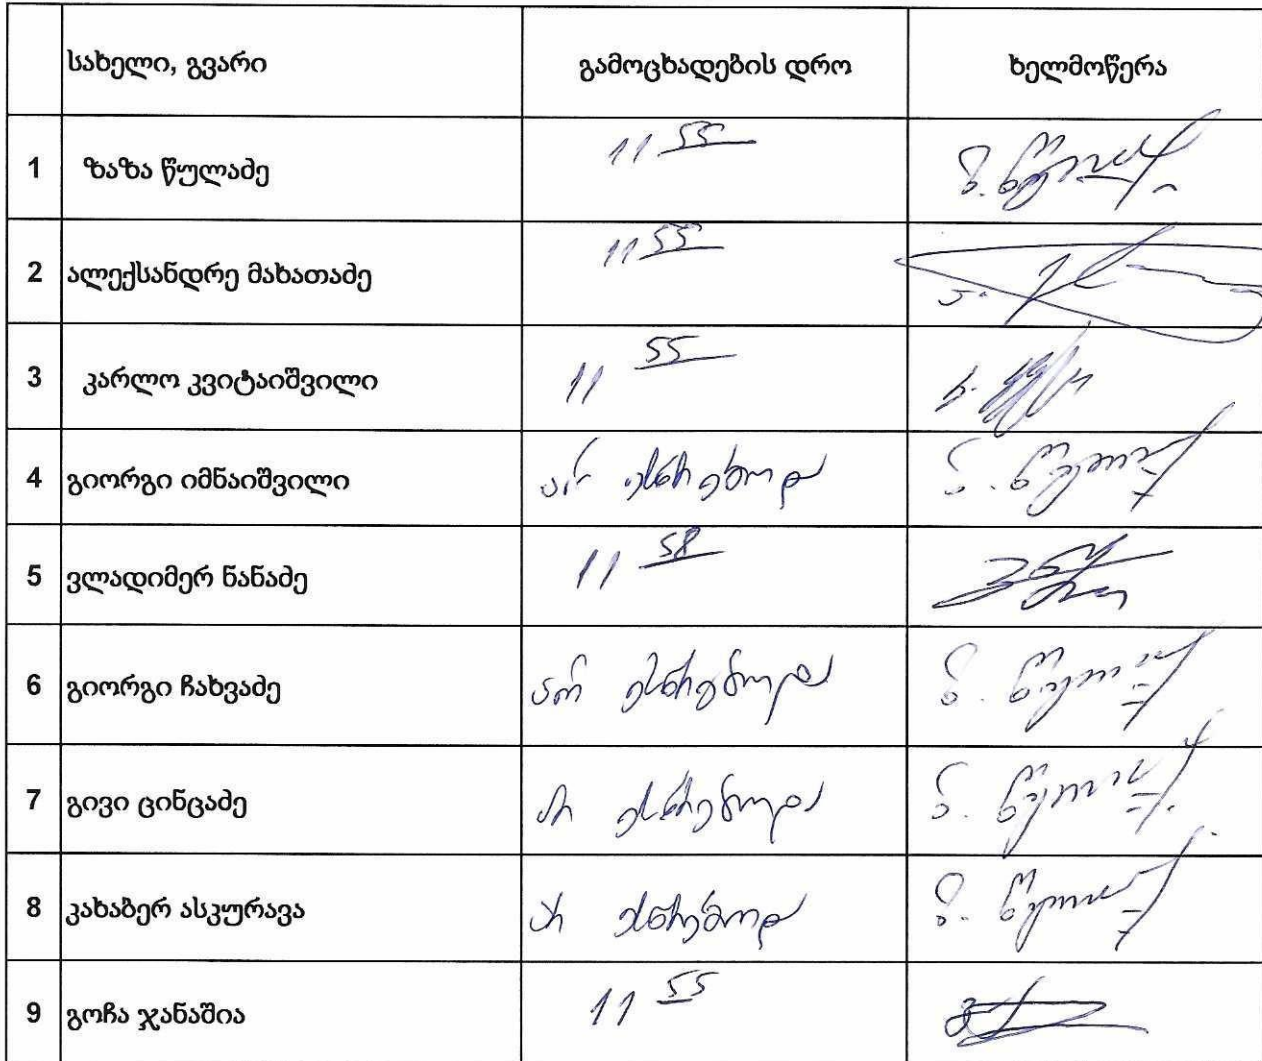 სახელი, გვარი გამოცხადების დრო ხელმოწერა
1 ზაზა წულაძე 11 55
2 ალექსანდრე მახათაძე 11 55
3 კარლო კვიტაიშვილი 11 55
4 გიორგი იმნაიშვილი არ ესწრებოდა
5 ვლადიმერ ნანაძე 11 58
6 გიორგი ჩახვაძე არ ესწრებოდა
7 გივი ცინცაძე არ ესწრებოდა
8 კახაბერ ასკურავა არ ესწრებოდა
9 გოჩა ჯანაშია 11 55